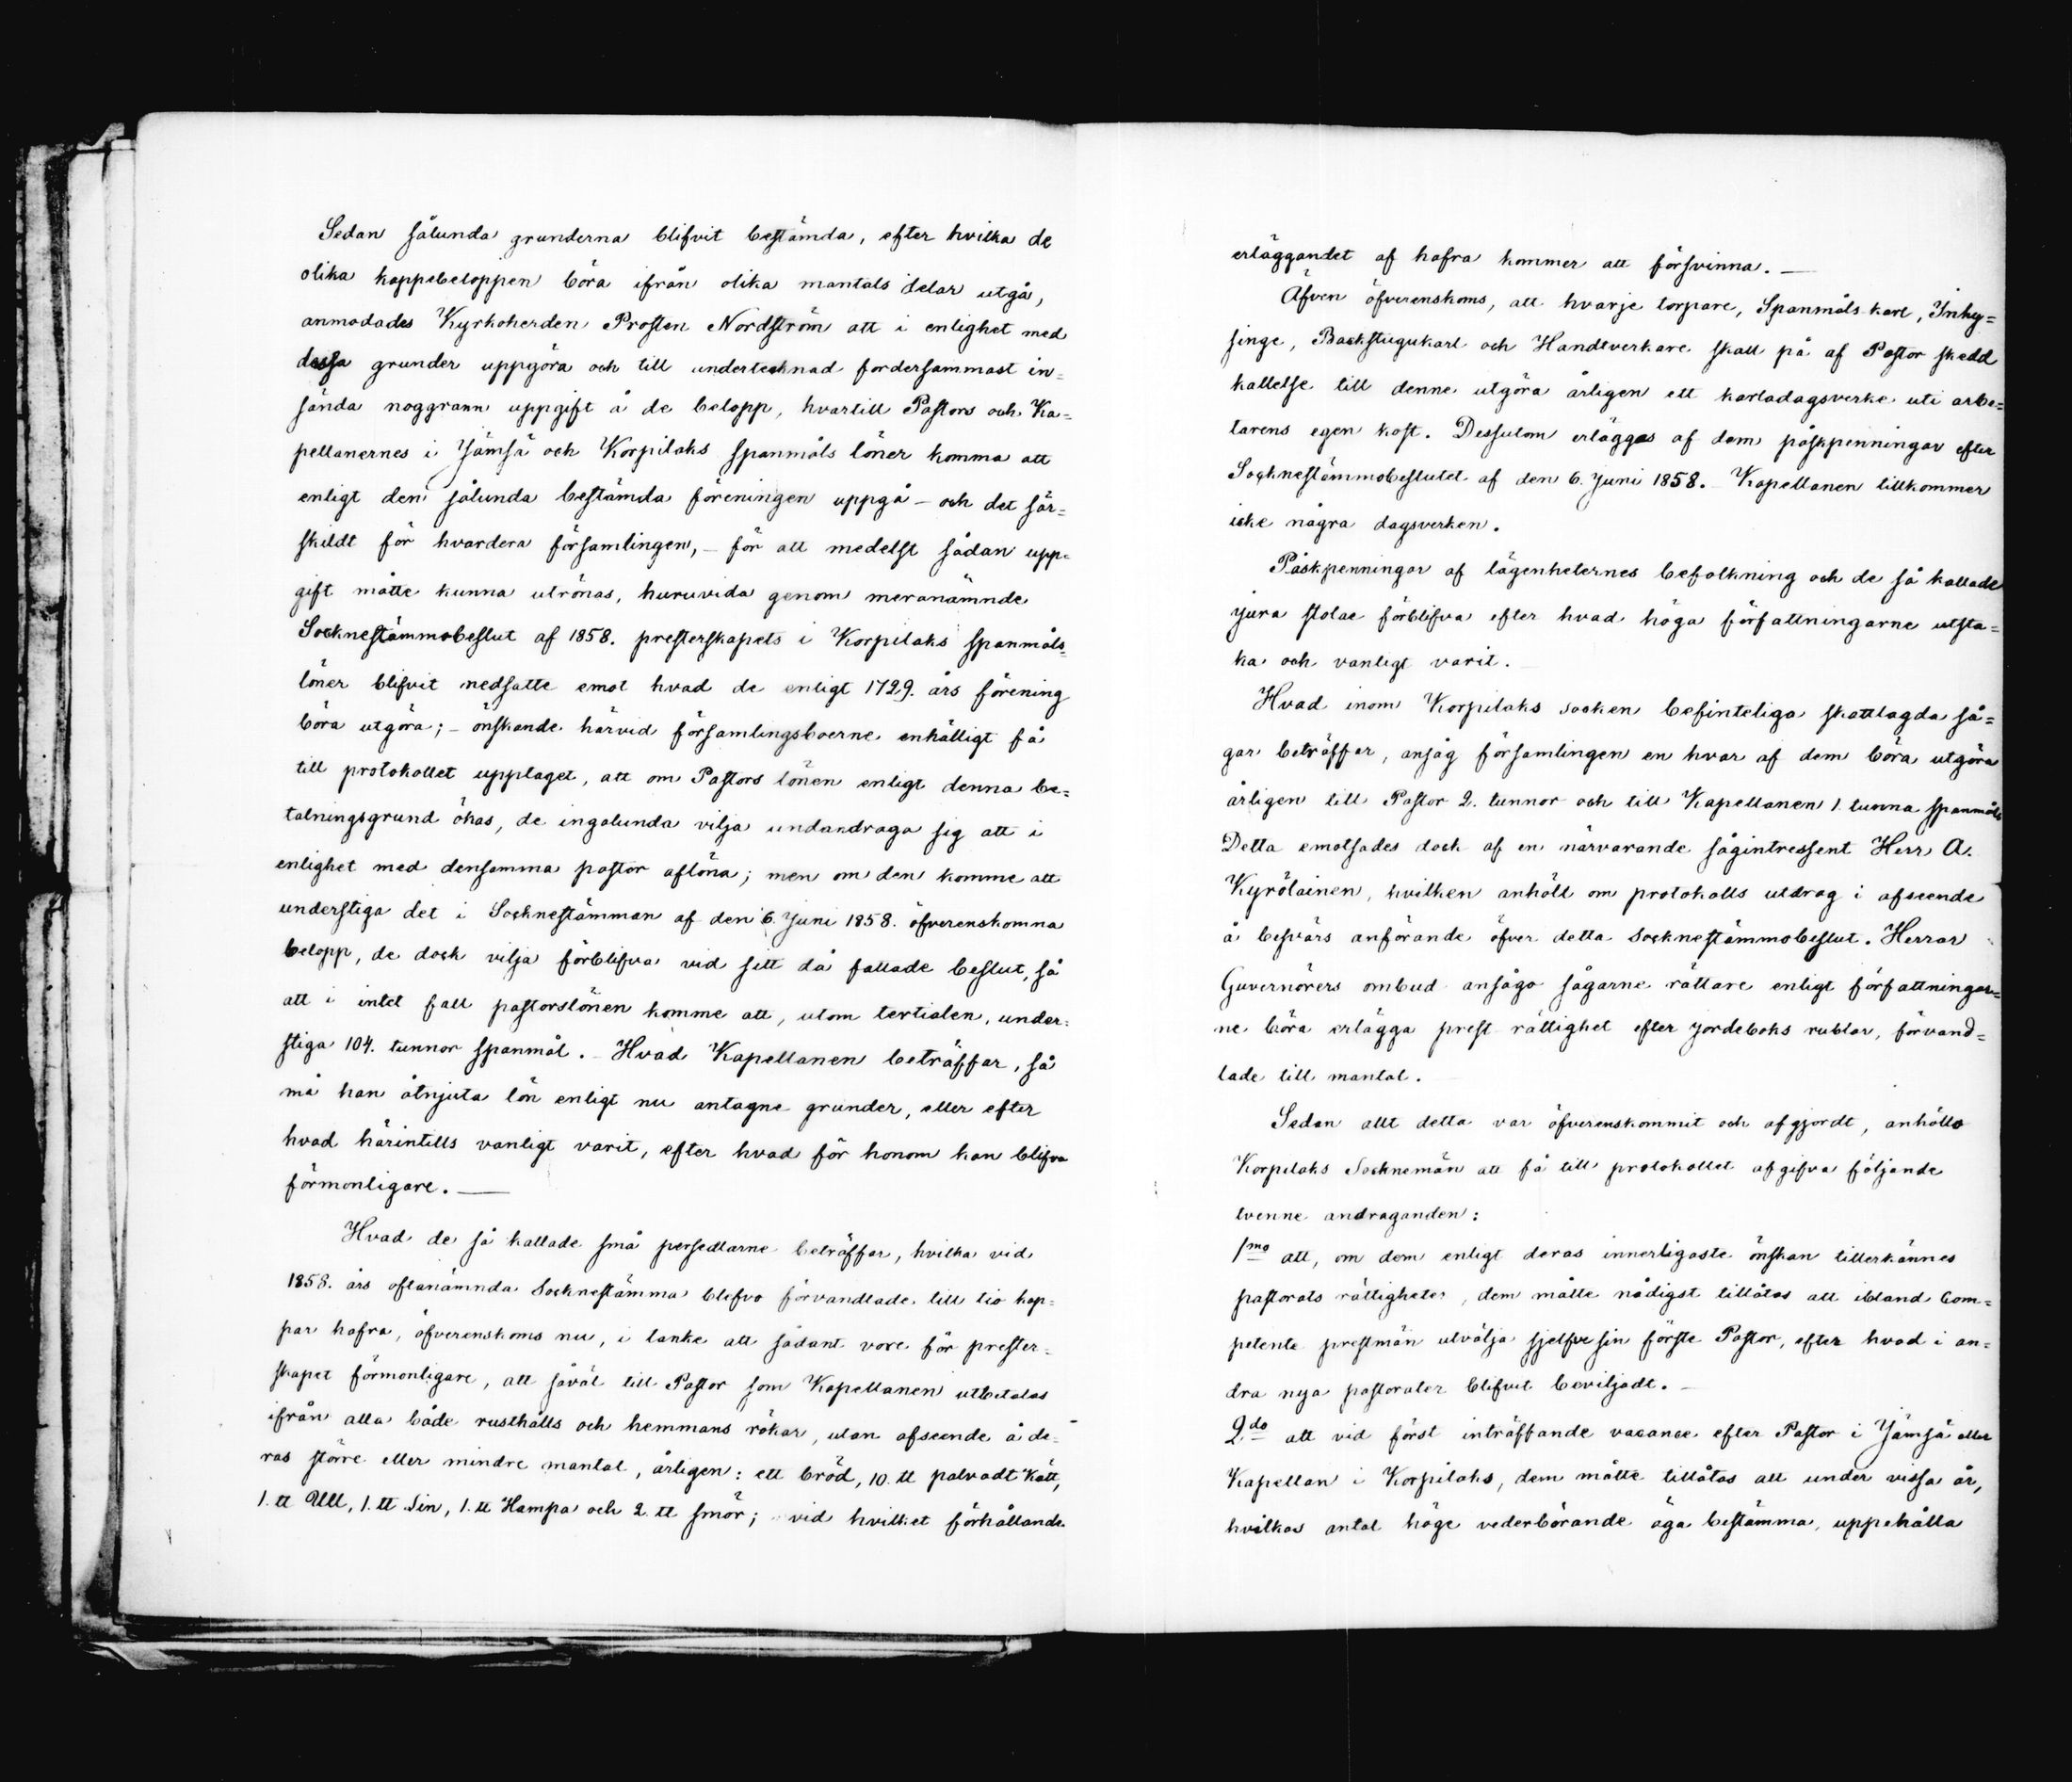 Sedan sålunda grunderna blifvit bestämda, efter hvilka de
olika kappebeloppen böra ifrån olika mantals delar utgå,
anmodades Kyrkoherden Prosten Nordström att i enlighet med
dessa grunder uppgöra och till undertecknad fordersammast in=
sända noggrann uppgift å de belopp, hvartill Pastors och Ka=
pellanernes i Jämsä och Korpilaks spanmåls löner komma att
enligt den sålunda bestämda föreningen uppgå – och det sär=
skildt för hvardera församlingen, – för att medelst sådan upp=
gift måtte kunna utrönas, huruvida genom meranämnde
Socknestämmobeslut af 1858. presterskapets i Korpilaks spanmåls=
löner blifvit nedsatte emot hvad de enligt 1729. års förening
böra utgöra; – önskande härvid församlingsboerne enhälligt få
till protokollet upptaget, att om Pastors lönen enligt denna be=
talningsgrund ökas, de ingalunda vilja undandraga sig att i
enlighet med densamma pastor aflöna; men om den komme att
understiga det i Socknestämman af den 6. Juni 1858. öfverenskomna
belopp, de dock vilja förblifva vid sitt då fattade beslut, så
att i intet fall pastorslönen komme att, utom tertialen, under=
stiga 104. tunnor spanmål. – Hvad Kapellanen beträffar, så
må han åtnjuta lön enligt nu antagne grunder, eller efter
hvad härintills vanligt varit, efter hvad för honom kan blifva
förmonligare. —
Hvad de så kallade små persedlarne beträffar, hvilka vid
1858. års oftanämnda Socknestämma blefvo förvandlade till tio kap=
par hafra, öfverenskoms nu, i tanke att sådant vore för prester=
skapet förmonligare, att såväl till Pastor som Kapellanen utbetalas
ifrån alla både rusthålls och hemmans rökar, utan afseende å de=
ras större eller mindre mantal, årligen: ett bröd, 10. ℔ palvadt kött,
1. ℔ Ull, 1. ℔ Lin, 1. ℔ Hampa och 2 ℔ smör; vid hvilket förhållande
erläggandet af hafra kommer att försvinna. —
Äfven öfverenskoms, att hvarje torpare, Spanmåls karl, Inhy=
singe, Backstugukarl och Handtverkare skall på af Pastor skedd
kallelse till denne utgöra årligen ett karladagsverke uti arbe=
tarens egen kost. Dessutom erlägges af dem påskpenningar efter
Socknestämmobeslutet af den 6. Juni 1858. Kapellanen tillkommer
icke några dagsverken.
Påskpenningar af lägenheternes befolkning och de så kallade
jura stolae förblifva efter hvad höga författningarne utsta=
ka och vanligt varit.
Hvad inom Korpilaks socken befinteliga skattlagda så=
gar beträffar, ansåg församlingen en hvar af dem böra utgöra
årligen till Pastor 2. tunnor och till Kapellanen 1. tunna spanmål.
Detta emotsades dock af en närvarande sågintressent Herr A.
Kyrölainen, hvilken anhöll om protokolls utdrag i afseende
å besvärs anförande öfver detta Socknestämmobeslut. Herrar
Guvernörers ombud ansågo sågarne rättare enligt författningar=
ne böra erlägga prest rättighet efter jordeboks rublar, förvand=
lade till mantal.
Sedan allt detta var öfverenskommit och afgjordt, anhöllo
Korpilaks Socknemän att få till protokollet afgifva följande
tvenne andraganden:
1mo att, om dem enligt deras innerligaste önskan tillerkännes
pastorats rättigheter, dem måtte nådigst tillåtas att ibland com=
petente prestmän utvälja sjelfve sin förste Pastor, efter hvad i an=
dra nya pastorater blifvit beviljadt. –
2do att vid först inträffande vacance efter Pastor i Jämsä eller
Kapellan i Korpilaks, dem måtte tillåtas att under vissa år,
hvilkas antal höge vederbörande äga bestämma, uppehålla